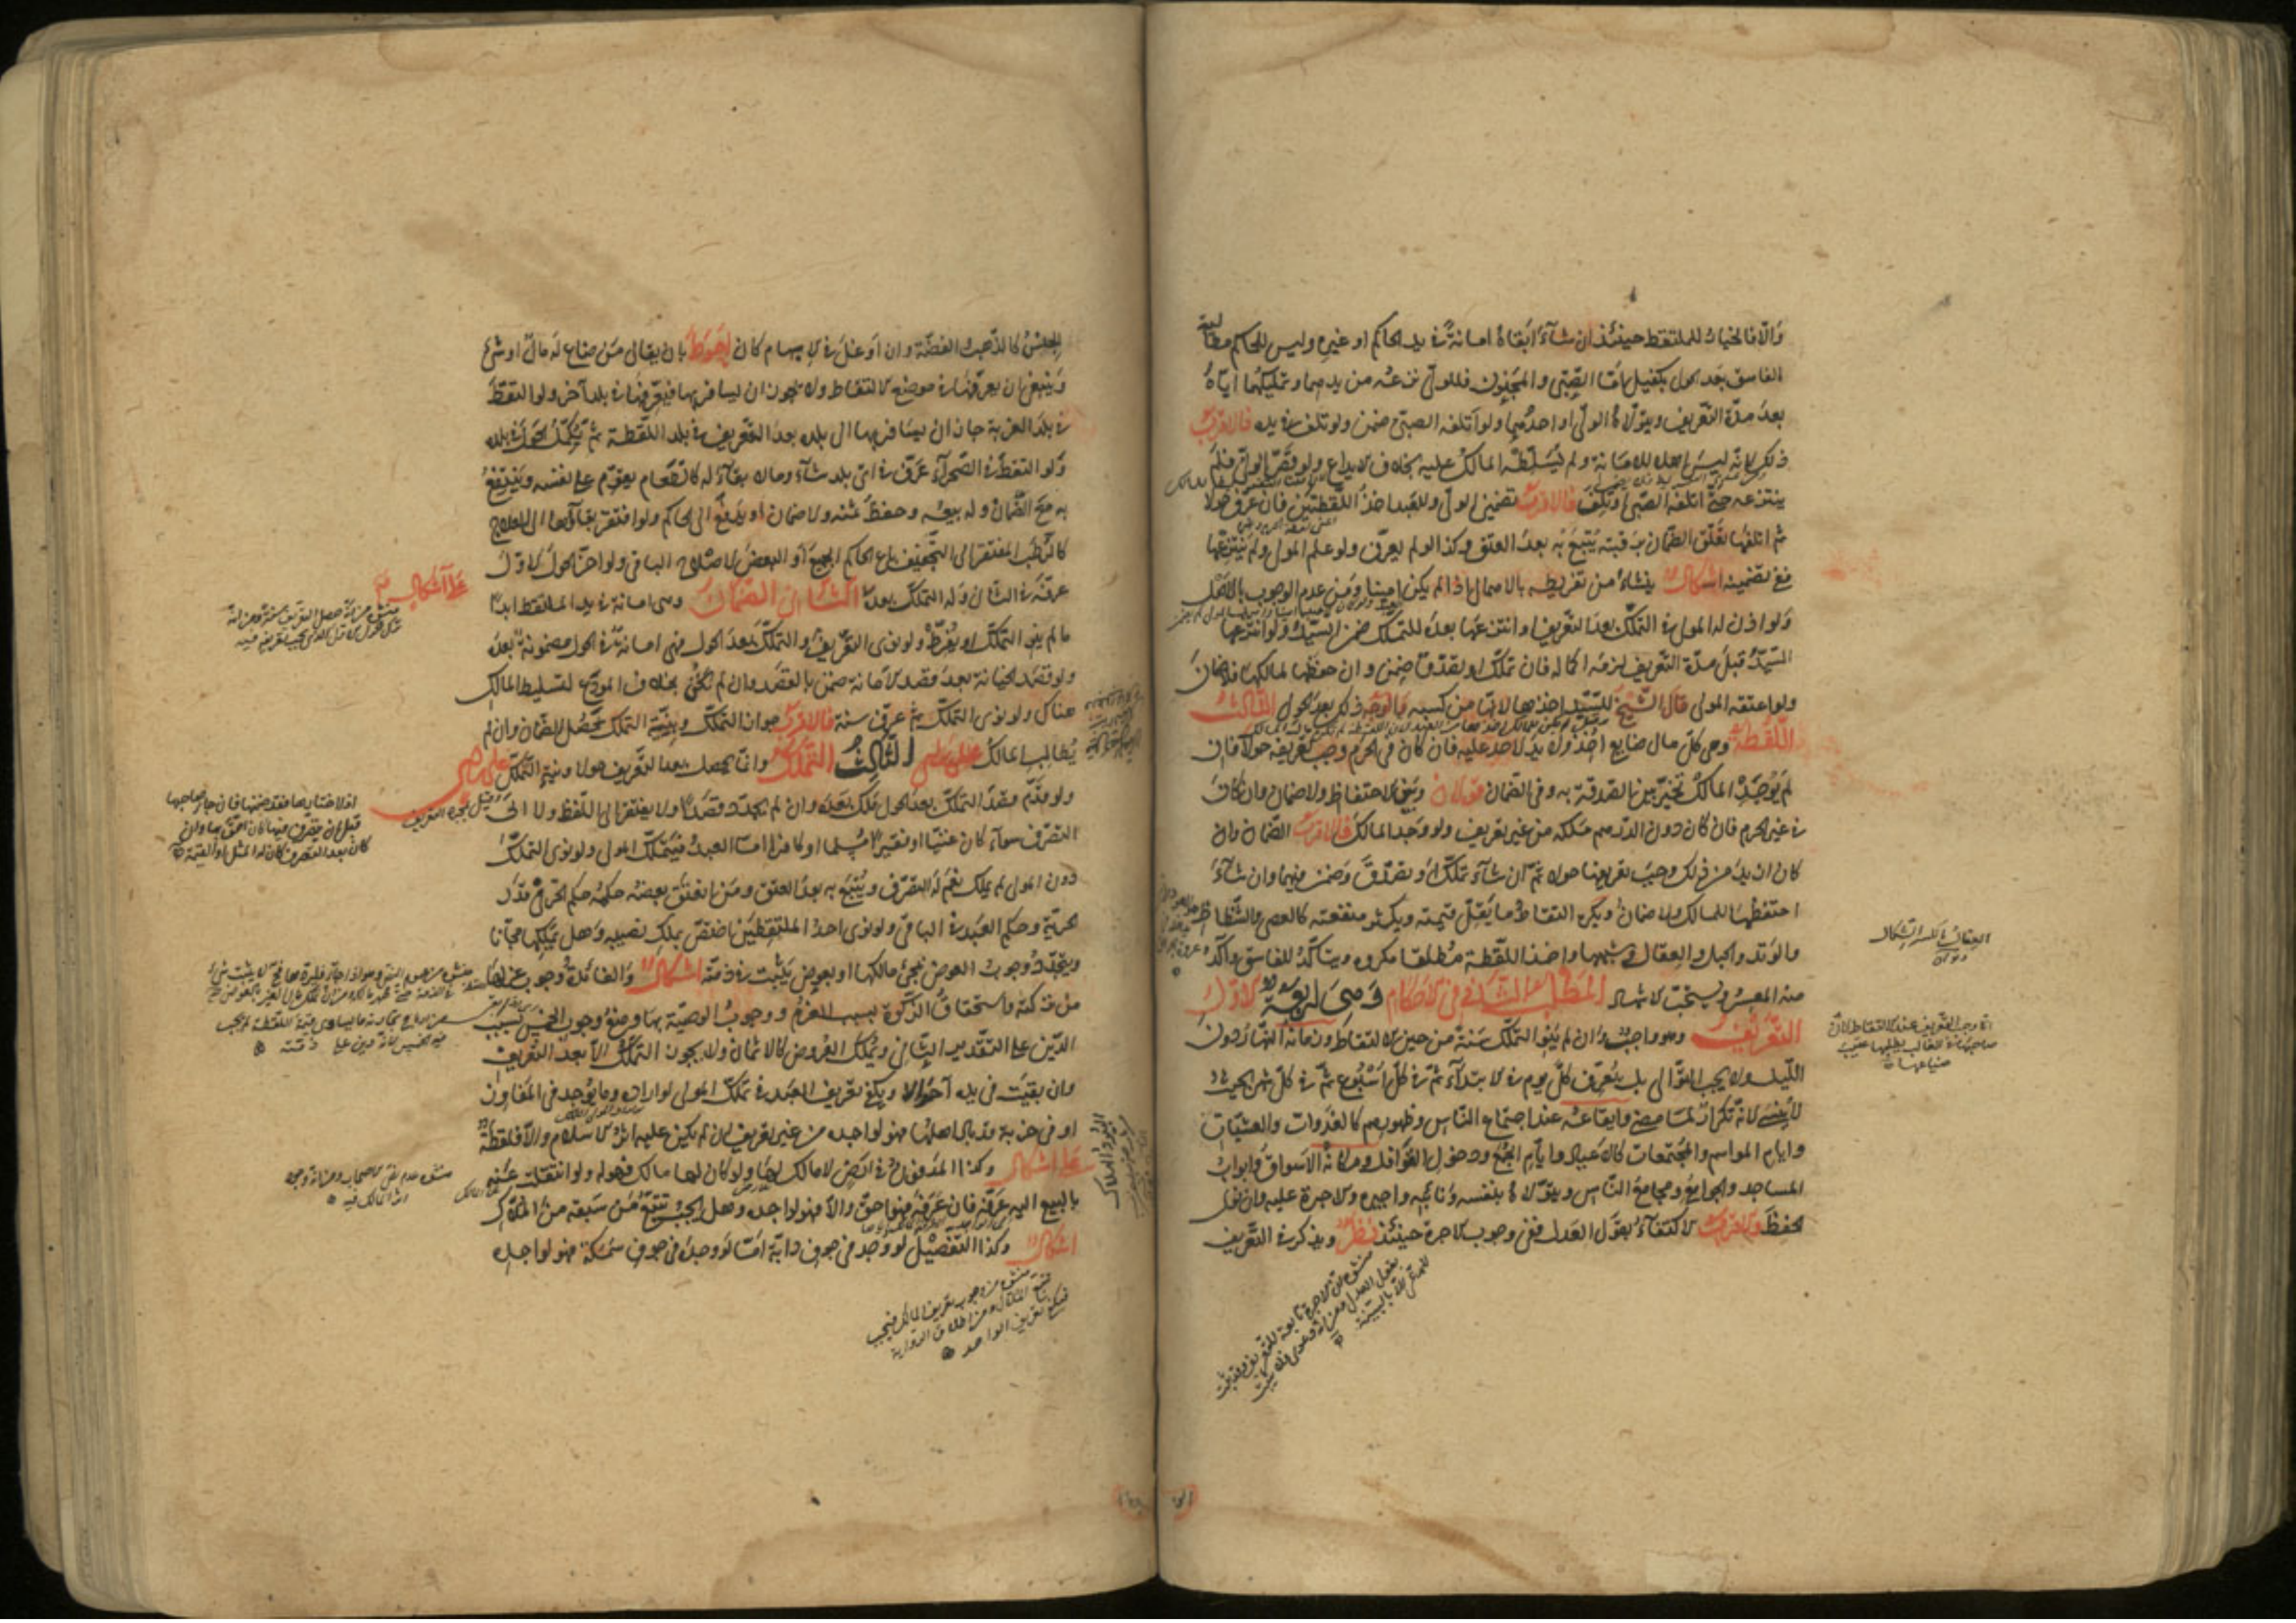 والا فالخيار للملتقط حينئذ ان شاء ابقاه امانة في يد الحاكم او غيره وليس للحاكم مطالبة
الفاسق بعد الحول بكفيل اما الصبي والمجنون فللولي نزعه من يدهما وتمليكهما اياه
بعد مدة التعريف ويتولاه الولي او احدهما ولو اتلفه الصبي ضمن ولو تلف في يده فالاقرب
ذلك لانه ليس اهلا للامانة ولم يسلطه المالك عليه بخلاف الايداع ولو قصر الولي فلم
ينتزعه حتى اتلفه الصبي او تلف فالاقرب تضمين الولي وللعبد اخذ اللقطتين فان عرف حولا
ثم اتلفها تعلق الضمان برقبته يتبع به بعد العتق وكذا لو لم يعرف ولو علم المولى ولم ينتزعها
ففي تضمينه اشكال ينشأ من تفريطه بالاهمال اذا لم يكن امينا ومن عدم الوجوب بالاصل
ولو اذن له المولى في التملك بعد التعريف او انتزعها بعده للتملك ضمن السيد ولو انتزعها
السيد قبل مدة التعريف لزمه اكماله فان تملك او تصدق ضمن وان حفظها لمالكها فلا ضمان
ولو اعتقه المولى قال الشيخ للسيد اخذها لانها من كسبه والوجه ذلك بعد الحول الثالث
اللقطة وهي كل مال ضايع اخذ ولا يد لاحد عليه فان كان في الحرم وجب تعريفه حولا فان
لم يوجد المالك تخير بين الصدقة به وفي الضمان قولان وبين الاحتفاظ ولا ضمان وان كان
في غير الحرم فان كان دون الدرهم ملكه من غير تعريف ولو وجد المالك فالاقرب الضمان وان
كان ازيد من ذلك وجب تعريفها حولا ثم ان شاء تملك او تصدق وضمن فيهما وان شاء
احتفظها للمالك ولا ضمان ويكره التقاط ما يقل قيمته ويكثر منفعته كالعصى والشظاظ
والوتد والحبل والعقال وشبهها واخذ اللقطة مطلقا مكروه ويتاكد للفاسق وآكد
منه المعسر ويستحب الاشهاد المطلب الثاني في الاحكام وهي اربعة الاول
التعريف وهو واجب وان لم ينو التملك سنة من حين الالتقاط وزمانه النهار دون
الليل ولا يجب التوالي بل يعرف كل يوم في الابتداء ثم في كل اسبوع ثم في كل شهر بحيث
لا ينسى انه تكرار لما مضى وايقاعه عند اجتماع الناس وظهورهم كالغدوات والعشيات
وايام المواسم والمجتمعات كالاعياد وايام الجمع ودخول القوافل ومكانه الاسواق وابواب
المساجد والجوامع ومجامع الناس ويتولاه بنفسه ونائبه واجيره والاجرة عليه وان نوى
الحفظ والاقرب الاكتفاء بقول العدل ففي وجوب الاجرة حينئذ نظر ويذكر في التعريف
العقال بالكسر الشكال
انما وجب التعريف عند الالتقاط لان
صاحبها في الغالب يطلبها عقيب
ضياعها
الجنس كالذهب والفضة وان اوغل في الابهام كان احوط بان يقال من ضاع له مال او شئ
وينبغي ان يعرفها في موضع الالتقاط ولا يجوز ان يسافر بها فيعرفها في بلد آخر ولو التقط
في بلد الغربة جاز ان يسافر بها الى بلده بعد التعريف في بلد اللقطة ثم يكمل الحول في بلده
ولو التقط في الصحراء عرف في اي بلد شاء وما لا بقاء له كالطعام يقوم على نفسه وينتفع
به مع الضمان وله بيعه وحفظ ثمنه ولا ضمان او يدفع الى الحاكم ولو افتقر بقاؤها الى العلاج
كالرطب المفتقر الى التجفيف باع الحاكم الجميع او البعض لاصلاح الباقي ولو اخر الحول الاول
عرف في الثاني وله التملك بعده الثاني الضمان وهي امانة في يد الملتقط ابدا
ما لم ينو التملك او يفرط ولو نوى التعريف والتملك بعد الحول فهي امانة في الحول مضمونة بعده
ولو قصد الخيانة بعد قصد الامانة ضمن بالقصد وان لم يخن بخلاف المودع لتسليط المالك
هناك ولو نوى التملك ثم عرف سنة فالاقرب جواز التملك وبنية التملك يحصل الضمان وان لم
يطالب المالك على راي الثالث التملك وانما يحصل بعد التعريف حولا ونية التملك على راي
ولو قدم قصد التملك بعد الحول ملك بعده وان لم يجدد قصدا ولا يفتقر الى اللفظ ولا الى
التصرف سواء كان غنيا او فقيرا مسلما او كافرا اما العبد فيتملك المولى ولو نوى التملك
دون المولى لم يملك نعم له التصرف ويتبع به بعد العتق ومن انعتق بعضه حكمه حكم الحر في قدر
الحرية وحكم العبد في الباقي ولو نوى احد الملتقطين اختص بملك نصيبه وهل يملكها مجانا
ويتجدد وجوب العوض بمجئ مالكها او بعوض يثبت في ذمته اشكال والفائدة وجوب عزلها
من تركته واستحقاق الزكوة بسبب الغرم ووجوب الوصية بها ومنع وجوب الخمس بسبب
الدين على التقدير الثاني ويملك العروض كالاثمان ولا يجوز التملك الا بعد التعريف
وان بقيت في يده احوالا ويكفي تعريف العبد في تملك المولى لو اراده وما يوجد في المفاوز
او في خربة قد باد اهلها فهو لواجده من غير تعريف ان لم يكن عليه اثر الاسلام والا فلقطة
على اشكال وكذا المدفون في ارض لا مالك لها ولو كان لها مالك فهو له ولو انتقلت عنه
بالبيع اليه عرفه فان عرفه فهو احق والا فهو لواجده وهل يجب تتبع من سبقه من الملاك
اشكال وكذا التفصيل لو وجد في جوف دابة اما لو وجد في جوف سمكة فهو لواجده
على اشكال
وقيل بمجرد التعريف
كان بعد التصرف كان له المثل او القيمة